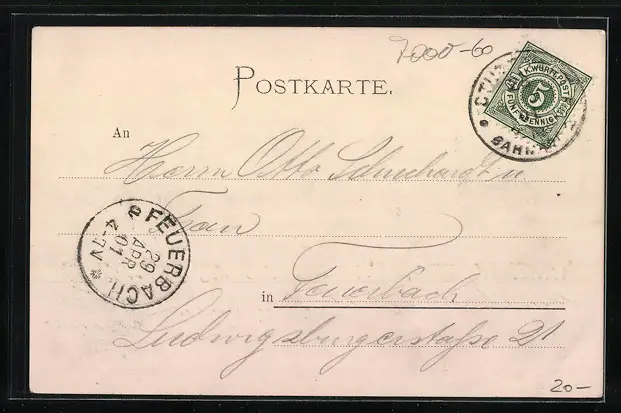 7000-60
POSTKARTE.
K. WÜRTT. POST
FÜNF PFENNIG
5
STUTT
BAHN
An
Herrn Otto Schuchardt u
Frau
FEUERBACH
29
APR
01
4-7V
in Feuerbach
Ludwigsburgerstraße 21
20-